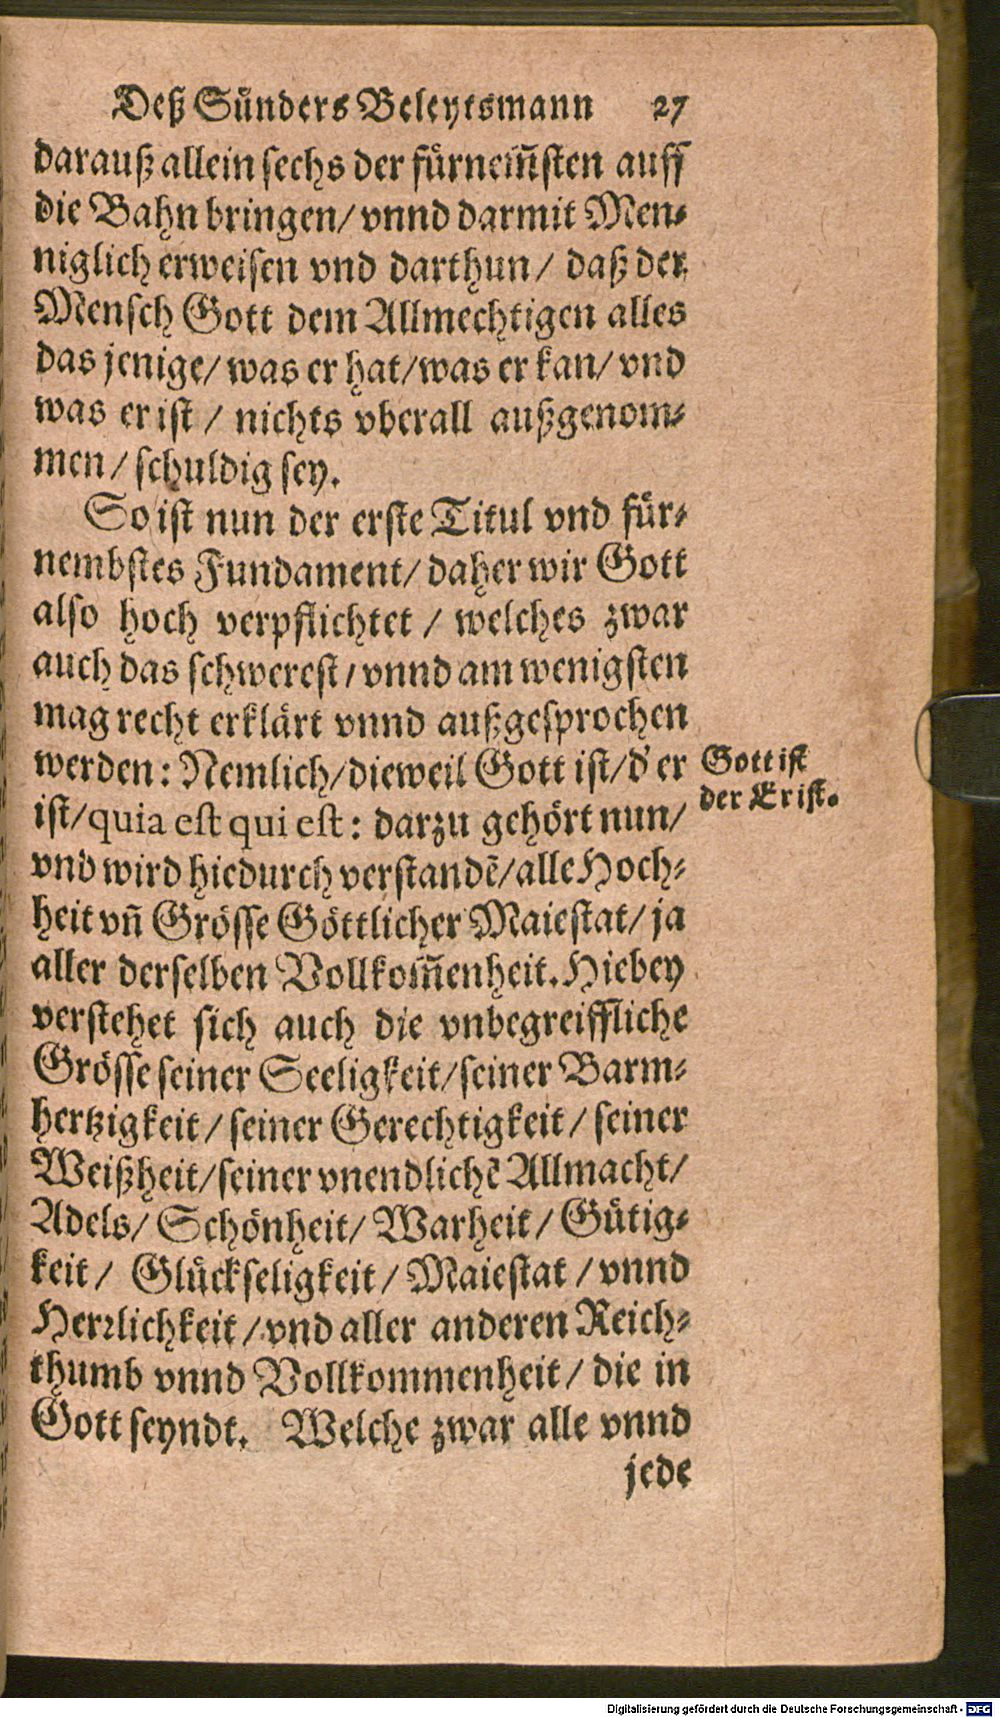 Deß Sünders Beleytsmann 27
darauß allein sechs der fürnem̃sten auff
die Bahn bringen/ vnnd darmit Men-
niglich erweisen vnd darthun/ daß der
Mensch Gott dem Allmechtigen alles
das jenige/ was er hat/ was er kan/ vnd
was er ist / nichts vberall außgenom-
men / schuldig sey.
So ist nun der erste Titul vnd für-
nembstes Fundament/ daher wir Gott
also hoch verpflichtet / welches zwar
auch das schwerest/ vnnd am wenigsten
mag recht erklärt vnnd außgesprochen
werden: Nemlich/ dieweil Gott ist/ d' er
Gott ist
der Er ist.
ist/ quia est qui est: darzu gehört nun/
vnd wird hiedurch verstandē/ alle Hoch-
heit vñ Grösse Göttlicher Maiestat/ ja
aller derselben Vollkom̃enheit. Hiebey
verstehet sich auch die vnbegreiffliche
Grösse seiner Seeligkeit/ seiner Barm-
hertzigkeit / seiner Gerechtigkeit / seiner
Weißheit/ seiner vnendlichē Allmacht/
Adels/ Schönheit/ Warheit/ Gütig-
keit / Glückseligkeit / Maiestat / vnnd
Herrlichkeit / vnd aller anderen Reich-
thumb vnnd Vollkommenheit / die in
Gott seyndt. Welche zwar alle vnnd
jede
Digitalisierung gefördert durch die Deutsche Forschungsgemeinschaft - DFG